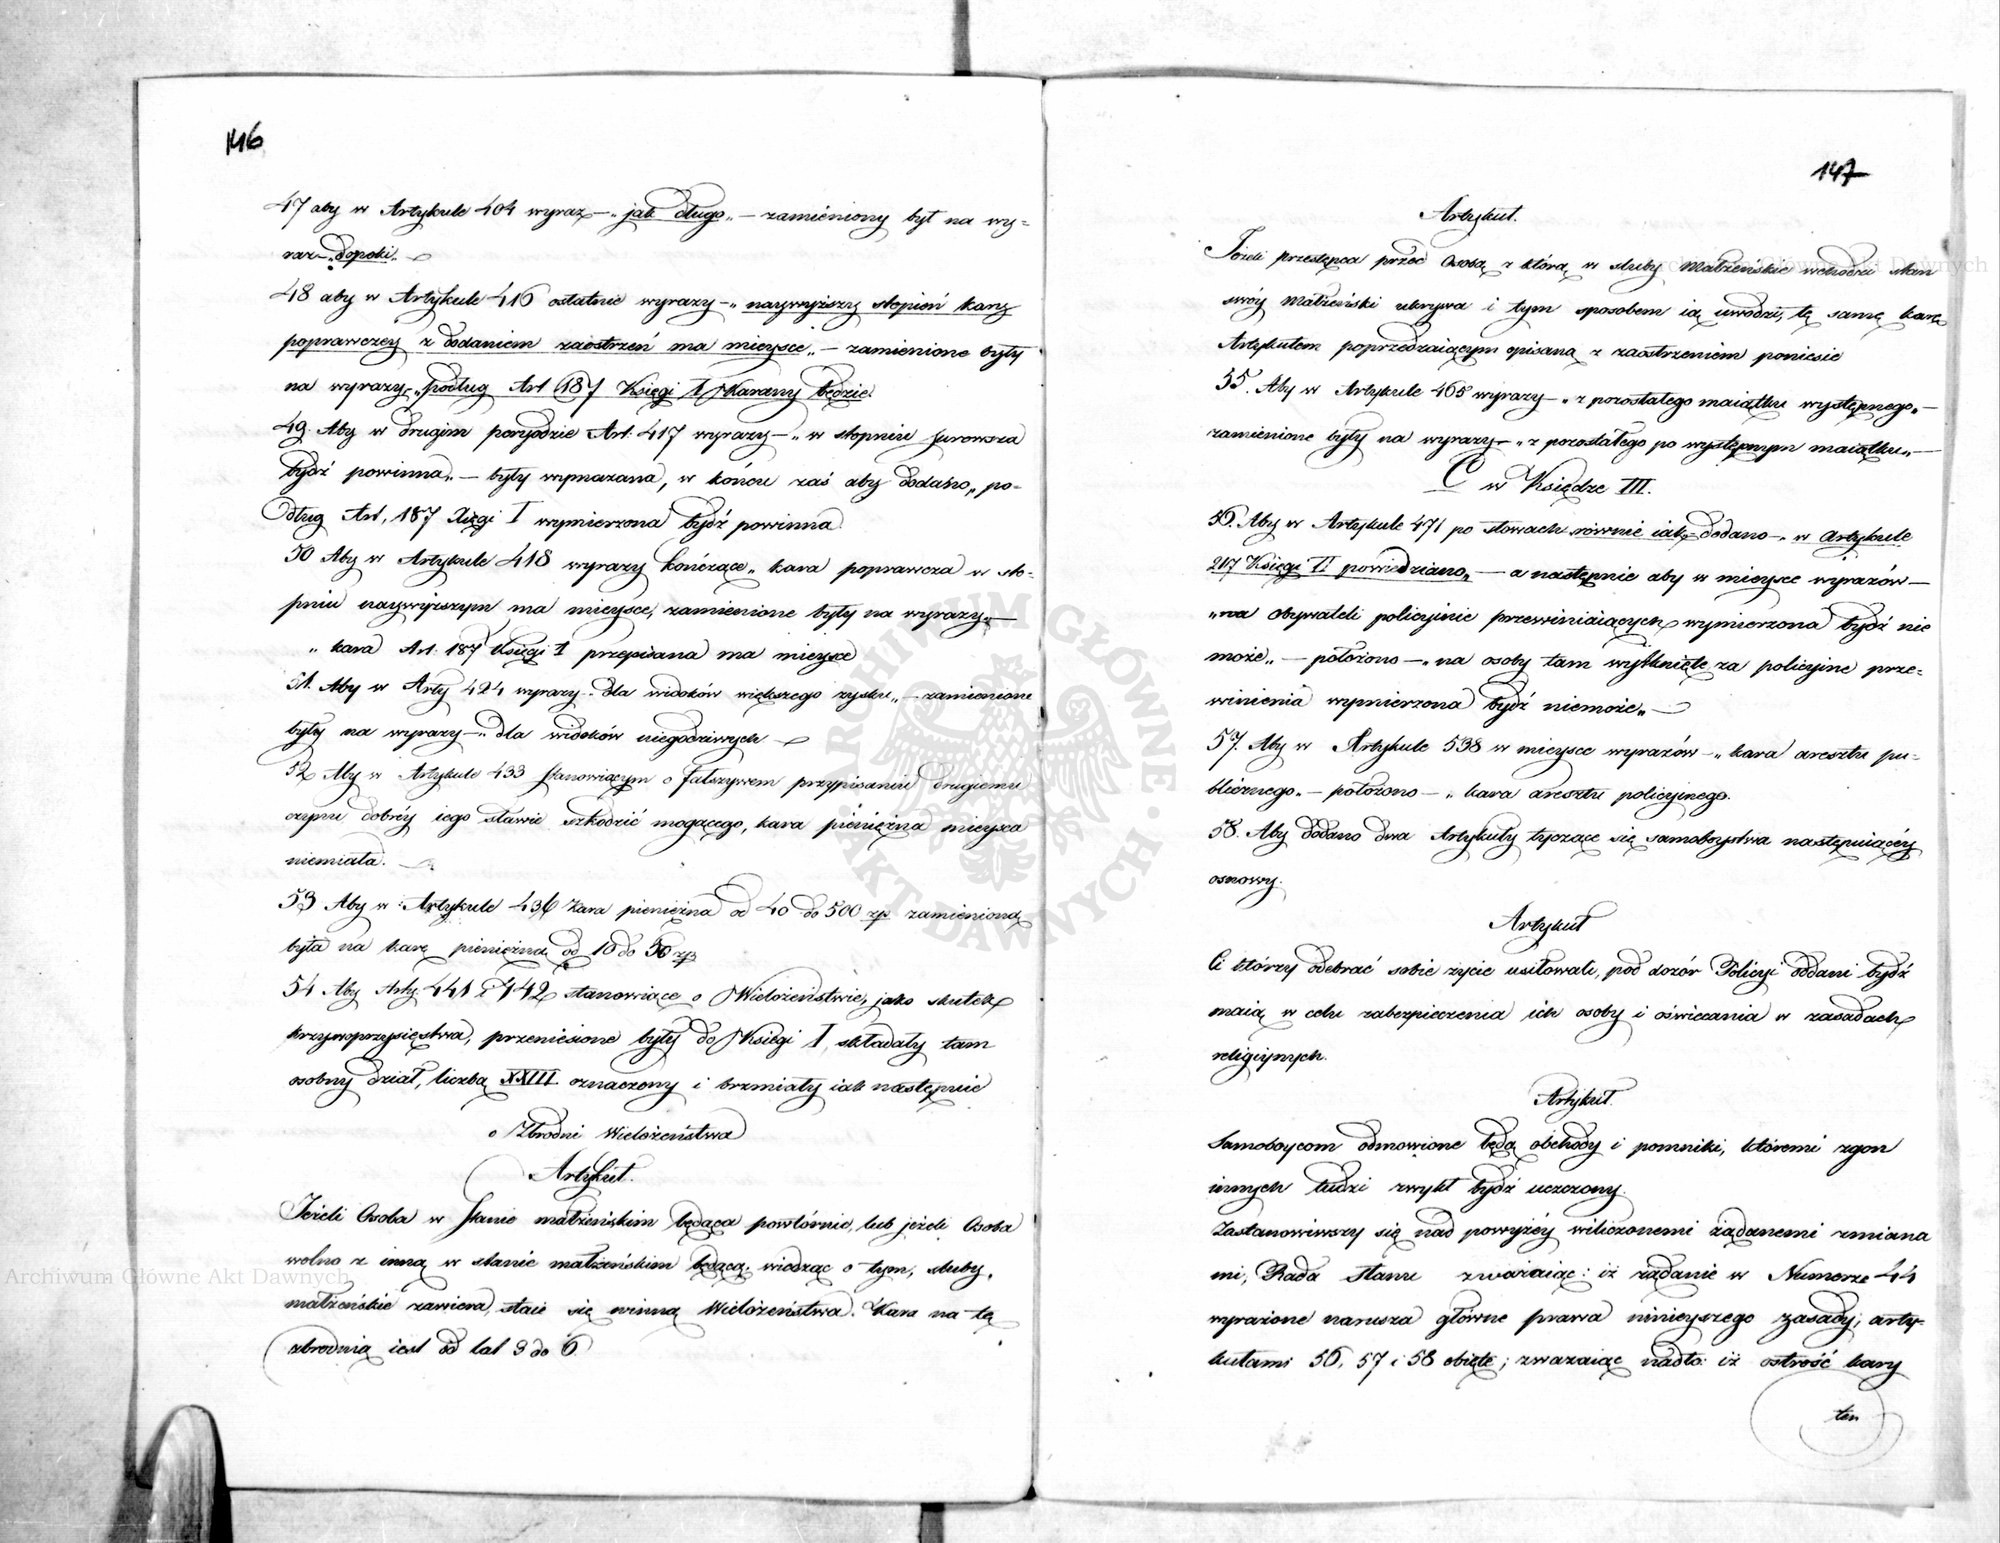 146
47 aby w Artykule 404 wyraz — „jak długo„ — zamieniony był na wy=
raz — „dopoki„ —
48 aby w Artykule 416 ostatnie wyrazy — „naywyższy stopień kary
poprawczey z dodaniem zaostrzeń ma mieysce„ — zamienione były
na wyrazy „podług Art 187 Księgi I Karany będzie.
49. Aby w drugim peryodzie Art: 417 wyrazy — „w stopniu surowsza
bydź powinna„ — były wymazana, w końcu zaś aby dodano„ po-
dług Art, 187 Xięgi I wymierzona bydź powinna
50 Aby w Artykule 418 wyrazy kończące „kara poprawcza w sto-
pniu naywyższym ma mieysce, zamienione były na wyrazy —
„kara Art: 187 Księgi I przepisana ma mieysce
51. Aby w Arty 424 wyrazy - dla widoków większego zysku„ — zamienione
były na wyrazy — „dla widoków niegodziwych —
52 Aby w Artykule 433 stanowiącym o fałszywem przypisaniu drugiemu
czynu dobréy iego sławie szkodzić mogącego, kara pieniężna mieysca
niemiała. —
53 Aby w Artykule 436 kara pieniężna od 40 do 500 zp zamieniona
była na karę pieniężną od 10 do 50 zp
54 Aby Arty. 441 i 442 stanowiące o Wielożeństwie, jako skutek
krzywoprzysięstwa, przeniesione były do Księgi I, składały tam
osobny dział, liczbą XXIII oznaczony i brzmiały iak następnie
o Zbrodni Wielożeństwa
Artykuł.
Jeżeli Osoba w stanie małżeńskim będąca powtórnie, lub jeżeli Osoba
wolna z inną w stanie małżeńskim będącą, wiedząc o tym, śluby
małżeńskie zawiera, staie się winną Wielożeństwa. Kara na tę
zbrodnią iest od lat 3 do 6
147
Artykuł.
Jeżeli przestępca przed Osobą z którą w śluby Małżeńskie wchodzi stan
swóy Małżeński ukrywa i tym sposobem ią uwodzi, tę samę karę
Artykułem poprzedzaiącym opisaną z zaostrzeniem poniesie
55. Aby w Artykule 465 wyrazy — „z pozostałego maiątku występnego„ —
zamienione były na wyrazy — „z pozostałego po występnym maiątku„ —
C w Księdze III.
56. Aby w Artykule 471 po słowach równie iak, dodano — „w Artykule
217 Księgi II powiedziano„ — a następnie aby w mieysce wyrazów —
„na obywateli policyinie przewiniaiących wymierzona bydź nie
może„ — położono — „na osoby tam wytknięte za policyine prze-
winienia wymierzona bydź niemoże„ —
57. Aby w Artykule 538 w mieysce wyrazów — „kara aresztu pu-
blicznego„ — położono — „kara aresztu policyinego.
58. Aby dodano dwa Artykuły tyczące się samoboystwa następuiącéy
osnowy.
Artykuł
Ci którzy odebrać sobie życie usiłowali, pod dozór Policyi oddani bydź
maią w celu zabezpieczenia ich osoby i oświecania w zasadach
religiynych.
Artykuł.
Samoboycom odmowione będą obchody i pomniki, któremi zgon
innych ludzi zwykł bydź uczczony.
Zastanowiwszy się nad powyżéy wiliczonemi żądanemi zmiana
mi, Rada Stanu zważaiąc: iż żądanie w Numerze 44
wyrażone narusza główne prawa niniejszego zasady, arty-
kułami 56, 57 i 58 obięte; zważaiąc nadto: iż ostrość kary
ten
Archiwum Główne Akt Dawnych
Archiwum Główne Akt Dawnych
ARCHIWUM GŁÓWNE · AKT DAWNYCH ·